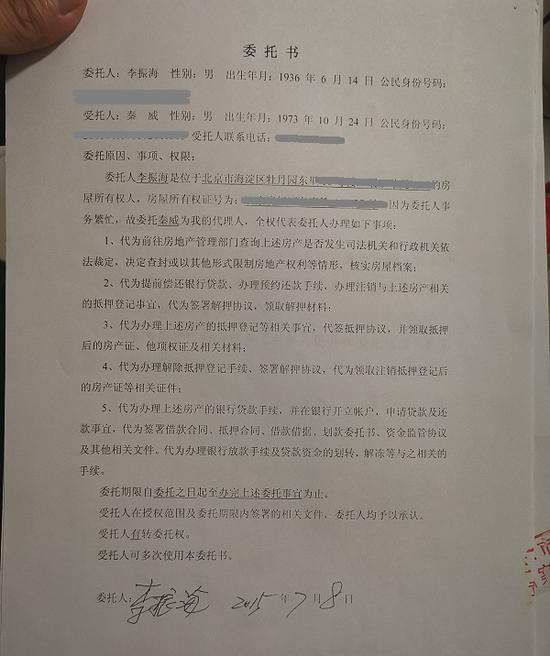 委托书
委托人：李振海 性别：男 出生年月：1936 年 6 月 14 日 公民身份号码：
受托人：秦 威 性别：男 出生年月：1973 年 10 月 24 日 公民身份号码：
受托人联系电话：
委托原因、事项、权限：
委托人李振海是位于北京市海淀区牡丹园东里的房
屋所有权人，房屋所有权证号为：因为委托人事
务繁忙，故委托秦威为我的代理人，全权代表委托人办理如下事项：
1、代为前往房地产管理部门查询上述房产是否发生司法机关和行政机关依
法裁定，决定查封或以其他形式限制房地产权利等情形，核实房屋档案；
2、代为提前偿还银行贷款、办理预约还款手续，办理注销与上述房产相关
的抵押登记事宜，代为签署解押协议，领取解押材料；
3、代为办理上述房产的抵押登记等相关事宜，代签抵押协议，并领取抵押
后的房产证、他项权证及相关材料；
4、代为办理解除抵押登记手续、签署解押协议，代为领取注销抵押登记后
的房产证等相关证件；
5、代为办理上述房产的银行贷款手续，并在银行开立帐户，申请贷款及还
款事宜，代为签署借款合同、抵押合同、借款借据、划款委托书、资金监管协议
及其他相关文件。代为办理银行放款手续及贷款资金的划转，解冻等与之相关的
手续。
委托期限自委托之日起至办完上述委托事宜为止。
受托人在授权范围及委托期限内签署的相关文件，委托人均予以承认。
受托人有转委托权。
受托人可多次使用本委托书。
委托人：李振海 2015 年 7 月 8 日